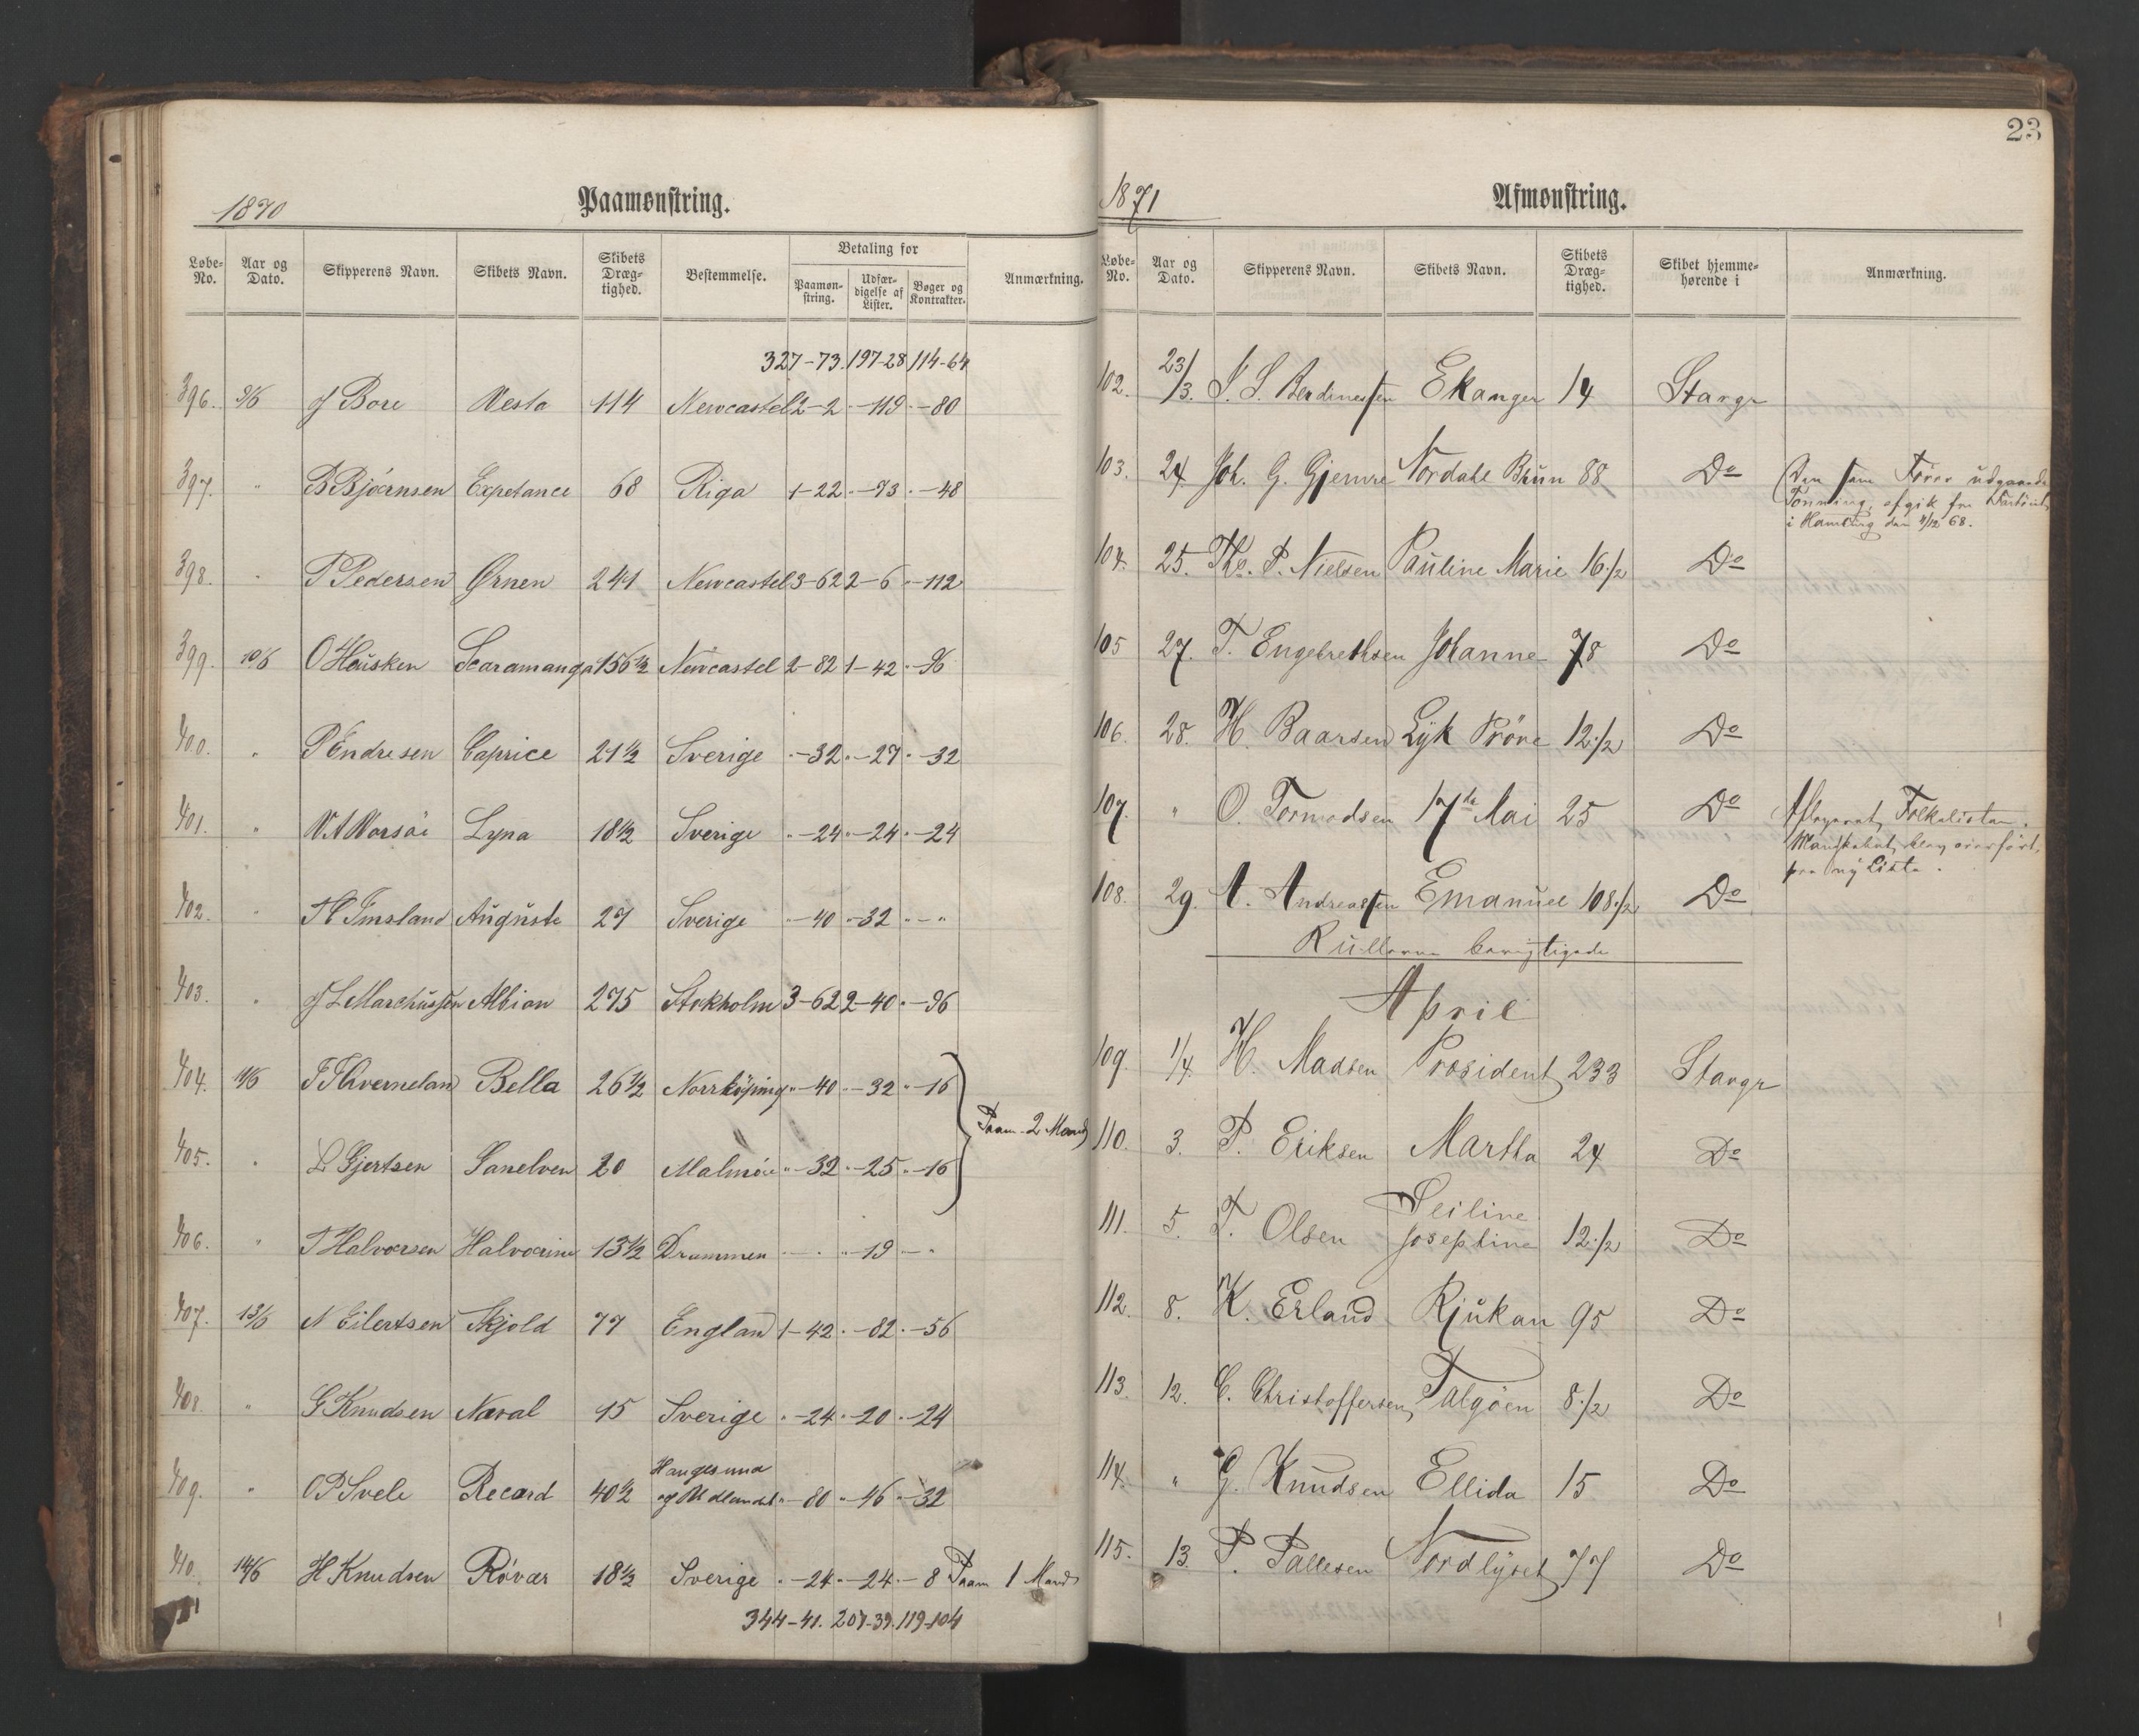 1870
Paamønstring.
Løbe-No. Aar og Dato. Skipperens Navn. Skibets Navn. Skibets Dræg-tighed. Bestemmelse. Betaling for Paamøn-string. Udfær-digelse af Lister. Bøger og Kontrakter. Anmærkning.
327-73. 197-28 114-64
396. 9/6 J Bore Vesta 114 Newcastel 2-2 "-119 "-80
397. " B Bjørnsen Expetance 68 Riga 1-22 "-73 "-48
398. " P Pedersen Ørnen 241 Newcastel 3-62 2-6 "-112
399. 10/6 O Hausken Scaramanga 156 1/2 Newcastel 2-82 1-42 "-96
400. " P Endresen Caprice 21 1/2 Sverige "-32 "-27 "-32
401. " Lyna 18 1/2 Sverige "-24 "-24 "-24
402. " Imsland Auguste 27 Sverige "-40 "-32 "-"
403. " J L Marchussen Albion 275 Stokholm 3-62 2-40 "-96
404. 11/6 T Thverneland Bella 26 1/2 Norrköping "-40 "-32 "-16
Paam. 2 Mand
405. " L Gjertsen Sanelven 20 Malmöe "-32 "-25 "-16
406. " T Halvorsen Halvorine 13 1/2 Drammen "-" "-19 -"
407. 13/6 N Eilertsen Skjold 77 England 1-42 "-82 "-56
408. " G Knudsen Narval 15 Sverige "-24 "-20 "-24
409. " O P Svele Record 40 1/2 Haugesund og Udlandet "-80 "-46 "-32
410. 14/6 H Knudsen Røvær 18 1/2 Sverige "-24 "-24 "-8 Paam 1 Mand
344-41. 207-39. 119-104
23
1871
Afmønstring.
Løbe-No. Aar og Dato. Skipperens Navn. Skibets Navn. Skibets Dræg-tighed. Skibet hjemme-hørende i Anmærkning.
102. 23/3. S. S. Berdinessen Ekanger 14 Stavgr
103. 24 Joh. G. Gjemre Nordahl Brun 88 Do Den som Fører udgaaede
Tonning, afgik fra Fartøiet
i Hamburg den 4/12 68.
104. 25. Ths. P. Nielsen Pauline Marie 16 1/2 Do
105 27. T. Engebrethsen Johanne 78 Do
106. 28. H. Baarsen Lyk Pröve 12 1/2 Do
107. " O. Tormodsen 17de Mai 25 Do Afleveret Folkelisten.
Mandskabet blev overført
paa ny Liste.
108. 29. A. Andreassen Emanuel 108 1/2 Do
Rullerne berigtigede
April
109. 1/4 H. Madsen President 233 Stavgr
110. 3. P. Eriksen Martha 24 Do
111. 5. T. Olsen Seiline Josephine 12 1/2 Do
112. 8. K. Erland Rjukan 95 Do
113. 12. C. Christoffersen Talgöen 8 1/2 Do
114. " G. Knudsen Ellida 15 Do
115. 13. P. Pallesen Nordlyset 77 Do